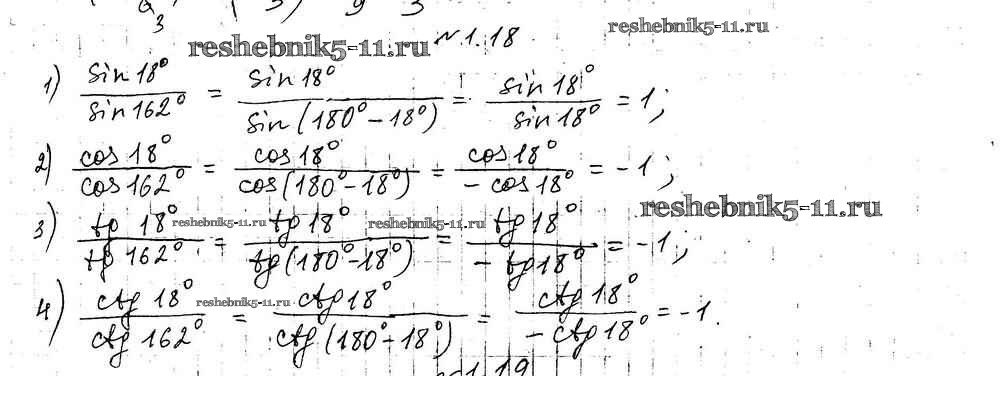 3
reshebnik5-11.ru №1.18 reshebnik5-11.ru
1) sin 18° / sin 162° = sin 18° / sin(180° - 18°) = sin 18° / sin 18° = 1;
2) cos 18° / cos 162° = cos 18° / cos(180° - 18°) = cos 18° / - cos 18° = -1;
reshebnik5-11.ru
3) tg 18° / tg 162° = tg 18° / tg(180° - 18°) = tg 18° / - tg 18° = -1;
reshebnik5-11.ru reshebnik5-11.ru
4) ctg 18° / ctg 162° = ctg 18° / ctg(180° - 18°) = ctg 18° / - ctg 18° = -1.
reshebnik5-11.ru reshebnik5-11.ru
1.19